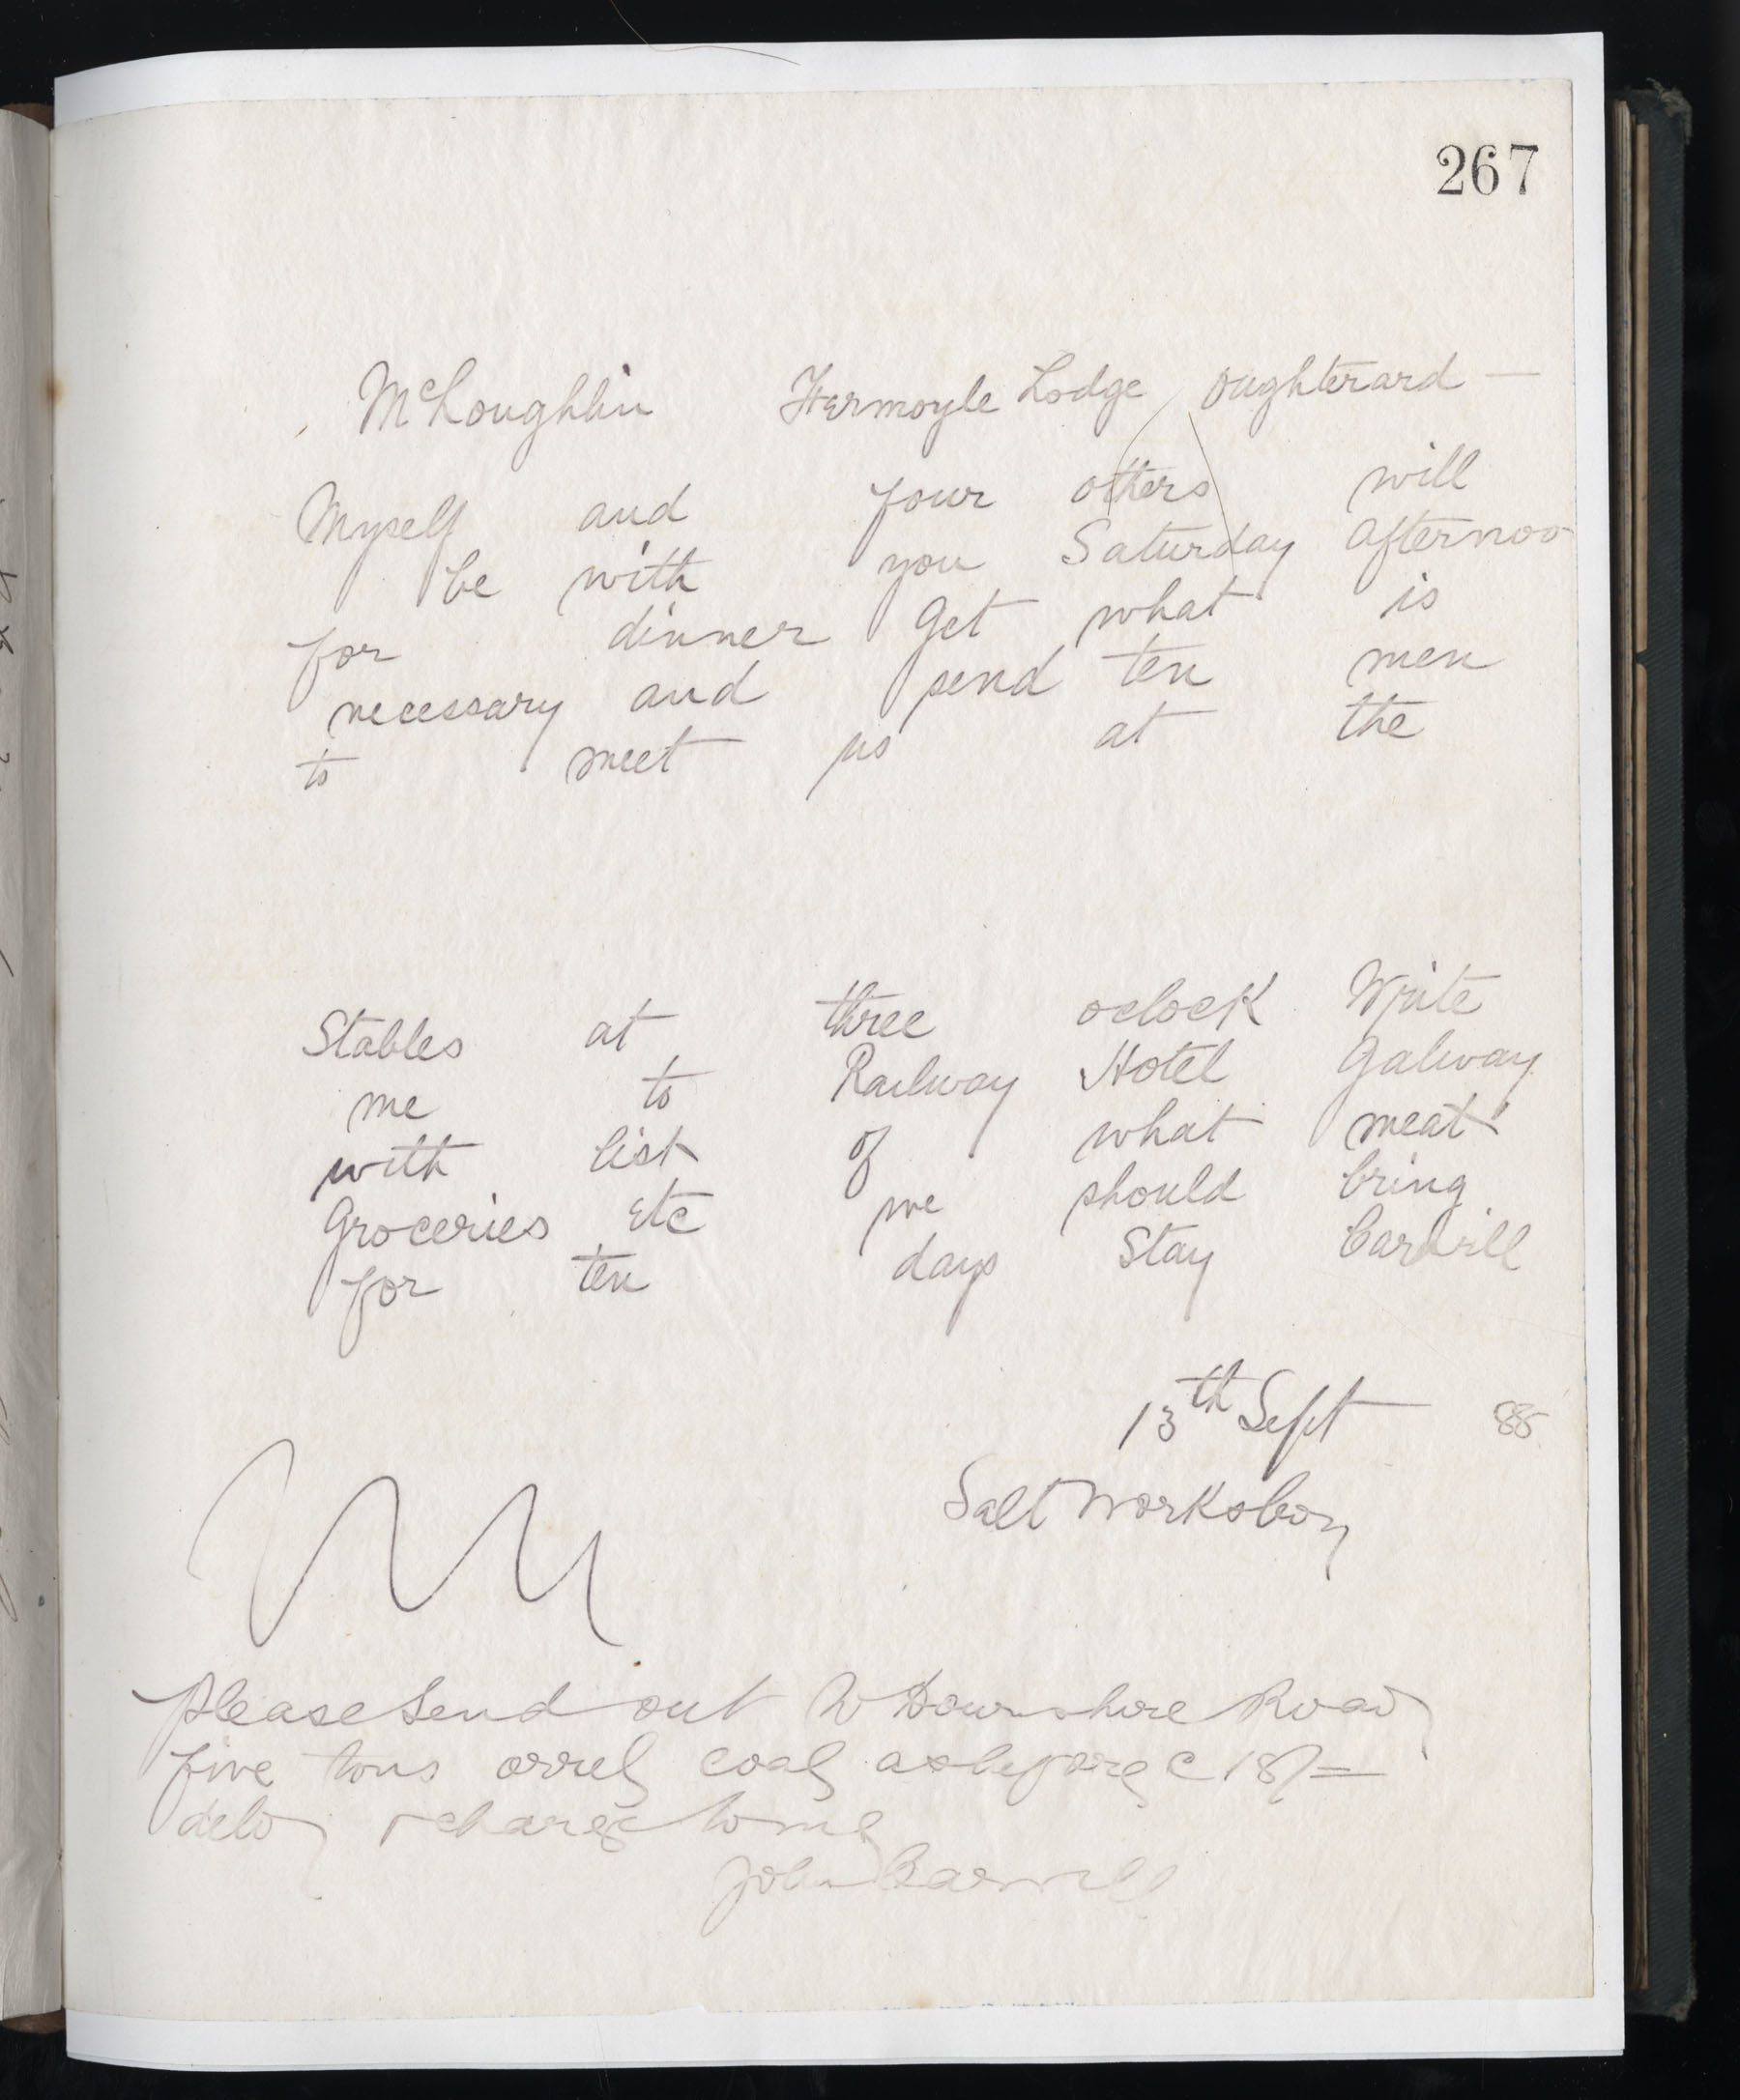 267
McLoughlin Fermoyle Lodge Oughterard —
Myself and four others will
be with you Saturday afternoo
for dinner Get what is
necessary and send ten men
to meet us at the
Stables at three oclock Write
me to Railway Hotel Galway
with list of what meat
Groceries Etc we should bring
for ten days Stay Barbrill
13th Sept 88
Salt Worksboy
Please send out to Downshire Road
five tons orrel coal as before @ 18/=
deld & charge to me
John